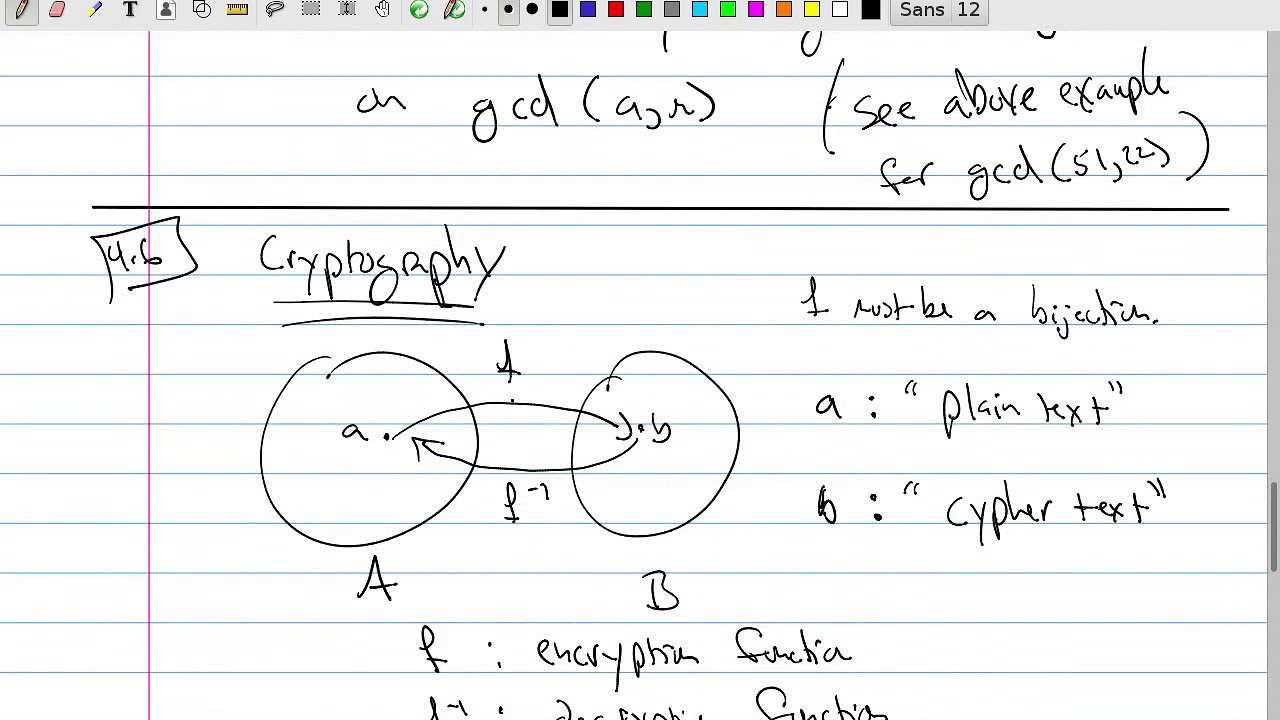 Sans 12
on gcd (a,r) (see above example
for gcd (51,22))
4.6 Cryptography
f must be a bijection.
f
a : "plain text"
a . . b
f⁻¹
b : "cypher text"
A B
f : encryption function
f⁻¹ : decryption function